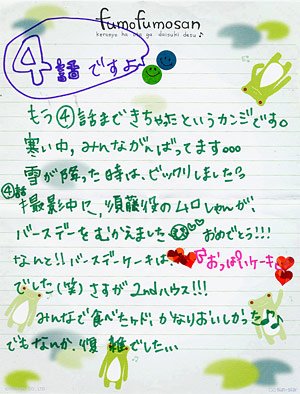 fumofumosan
kerosyo ha uta ga daisuki desu♪
④話ですよ♪
もう④話まできちゃったというカンジです。
寒い中、みんながんばってます。。。
雪が降った時は、ビックリしました
④話
撮影中に、須藤役のムロしゃんが、
バースデーをむかえました♡♡おめでとう!!!
なんと!!バースデーケーキは、♥♪おっぱいケーキ♥
でした(笑)さすが2ndハウス!!!
みんなで食べたケド、かなりおいしかった♪♪
でもなんか、複雑でした…